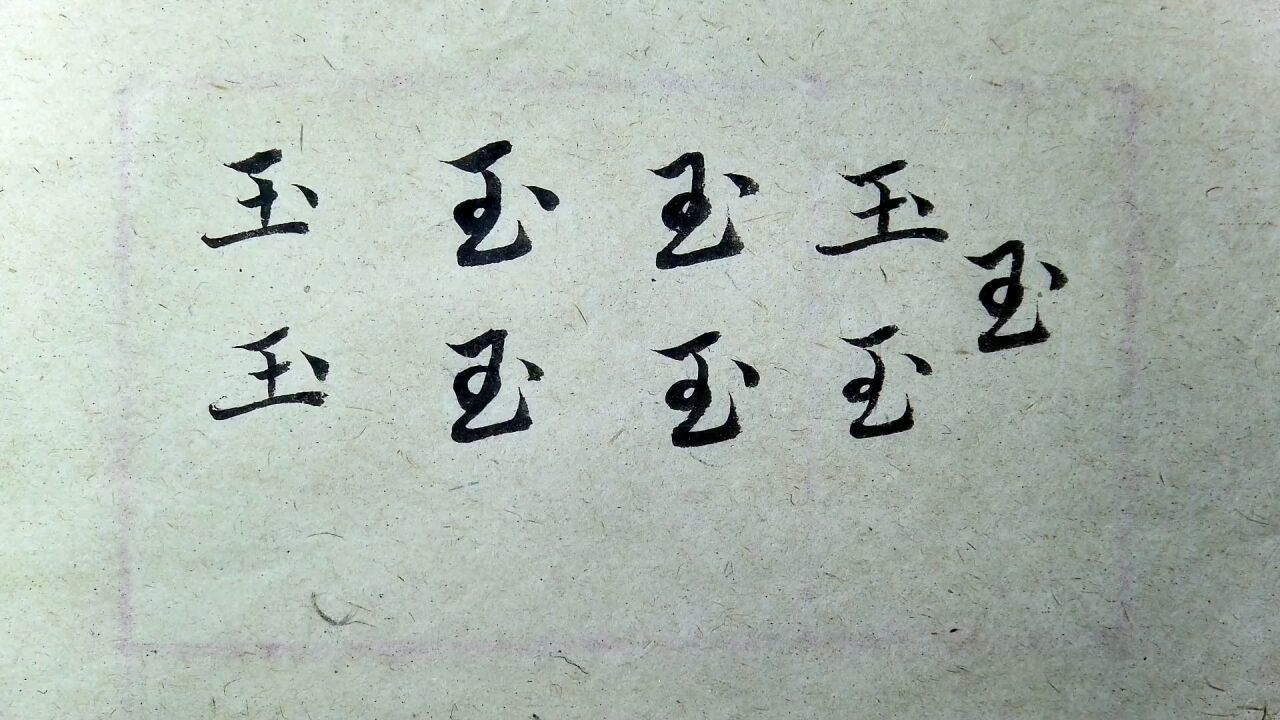 玉 玉 玉 玉 玉
玉 玉 玉 玉